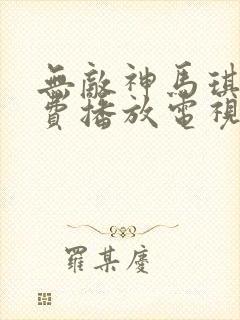 無敵神馬琪
費播放電視
羅某慶